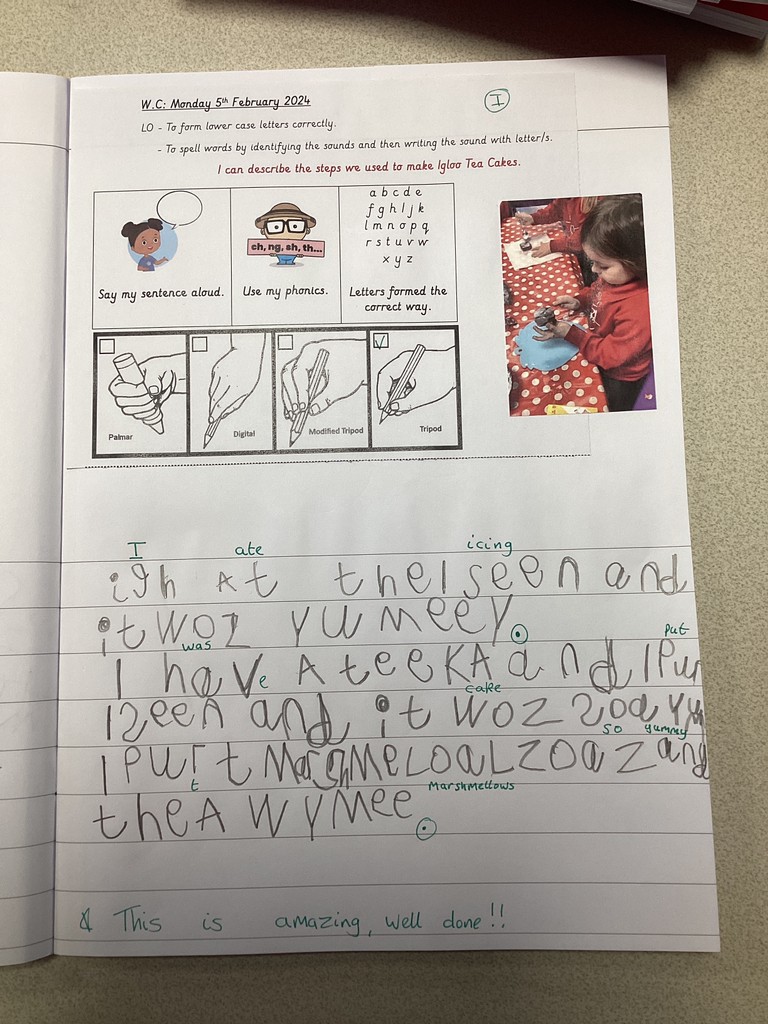 W.C: Monday 5th February 2024
I
LO - To form lower case letters correctly.
- To spell words by identifying the sounds and then writing the sound with letter/s.
I can describe the steps we used to make Igloo Tea Cakes.
a b c d e
f g h i j k
l m n o p q
r s t u v w
x y z
ch, ng, sh, th...
Say my sentence aloud.
Use my phonics.
Letters formed the
correct way.
Palmar
Digital
Modified Tripod
Tripod
I ate icing
igh At the I seen and
it woz yumeey.
was put
I have A teeKA and I Pur
cake
I seen and it woz zoa yu
so yummy
I Purt MarshMeLoaLzoaz and
t Marshmellows
theA w yMee.
This is amazing, well done!!